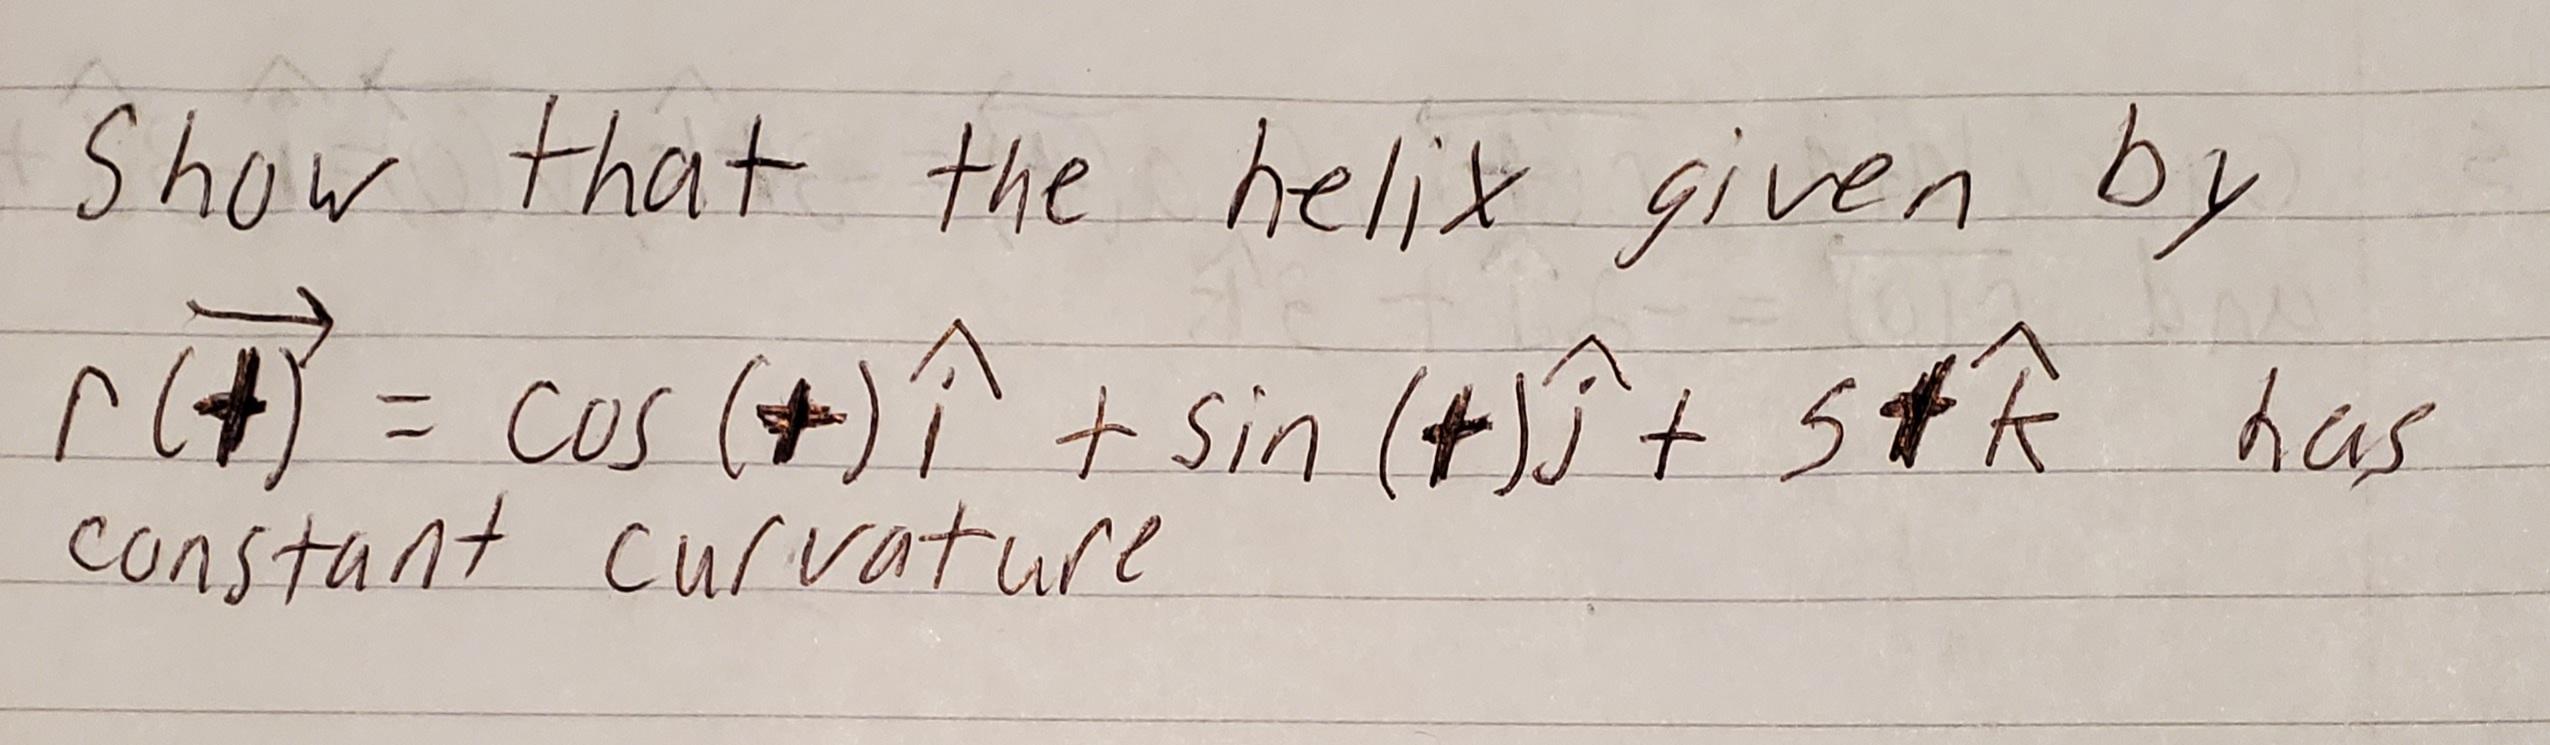 Show that the helix given by
r(t)⃗ = cos (t) î + sin (t) ĵ + 5t k̂ has
constant curvature